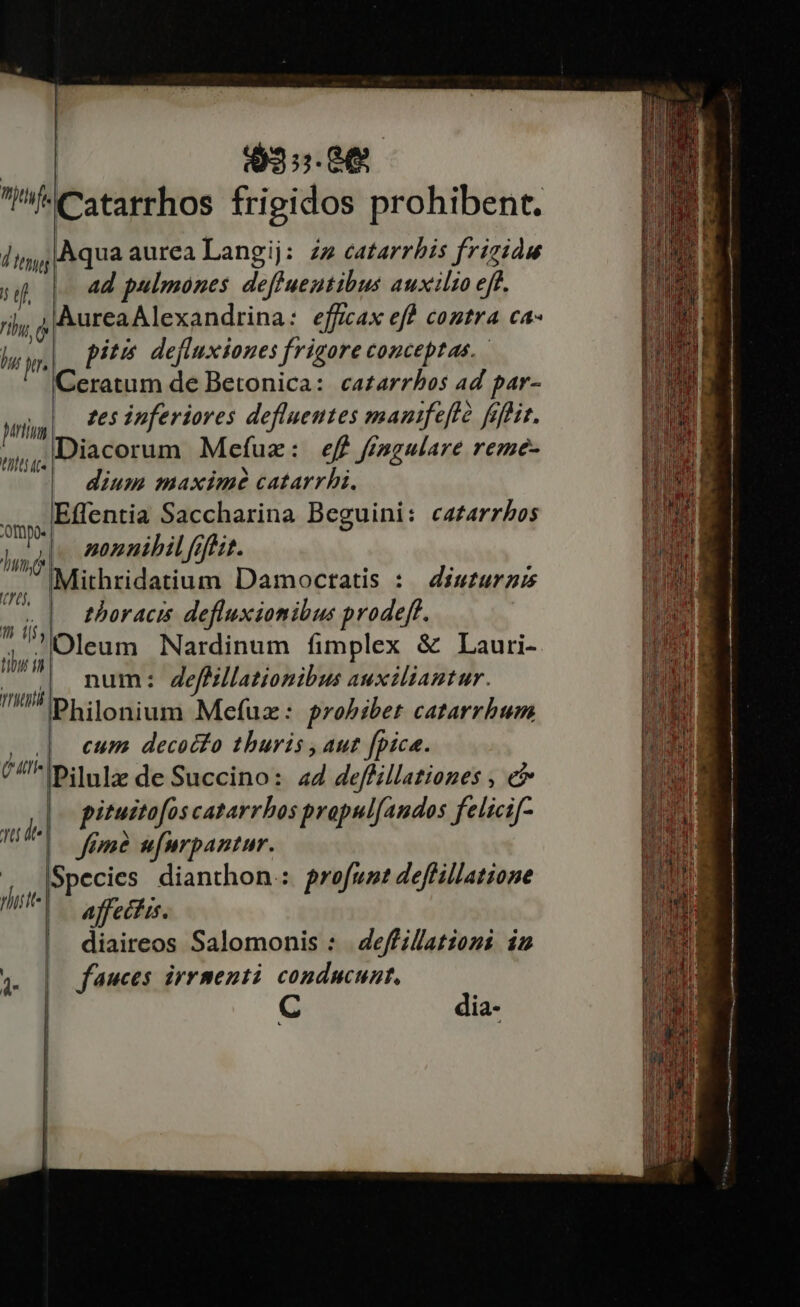 33.
Catarrhos frigidos prohibent.
Aqua aurea Langij: in catarrhis frigidis
ad pulmones defluentibus auxilio eſt.
Aurea Alexandrina: efficax eſt contra ca-
pitis defluxiones frigore conceptas.
Ceratum de Betonica: catarrhos ad par-
tes inferiores defluentes manifeſtè ſiſtit.
Diacorum Meſuæ: eſt ſingulare reme-
dium maximè catarrhi.
Eſſentia Saccharina Beguini: catarrhos
nonnihil ſiſtit.
Mithridatium Damocratis: diuturnis
thoracis defluxionibus prodeſt.
Oleum Nardinum ſimplex & Lauri-
num: deſtillationibus auxiliantur.
Philonium Meſuæ: prohibet catarrhum
cum decocto thuris, aut ſpicæ.
Pilulæ de Succino: ad deſtillationes, &
pituitoſos catarrhos propulſandos feliciſ-
ſimè uſurpantur.
Species dianthon: proſunt deſtillatione
affectis.
diaireos Salomonis: deſtillationi in
fauces irruenti conducunt.
C dia-